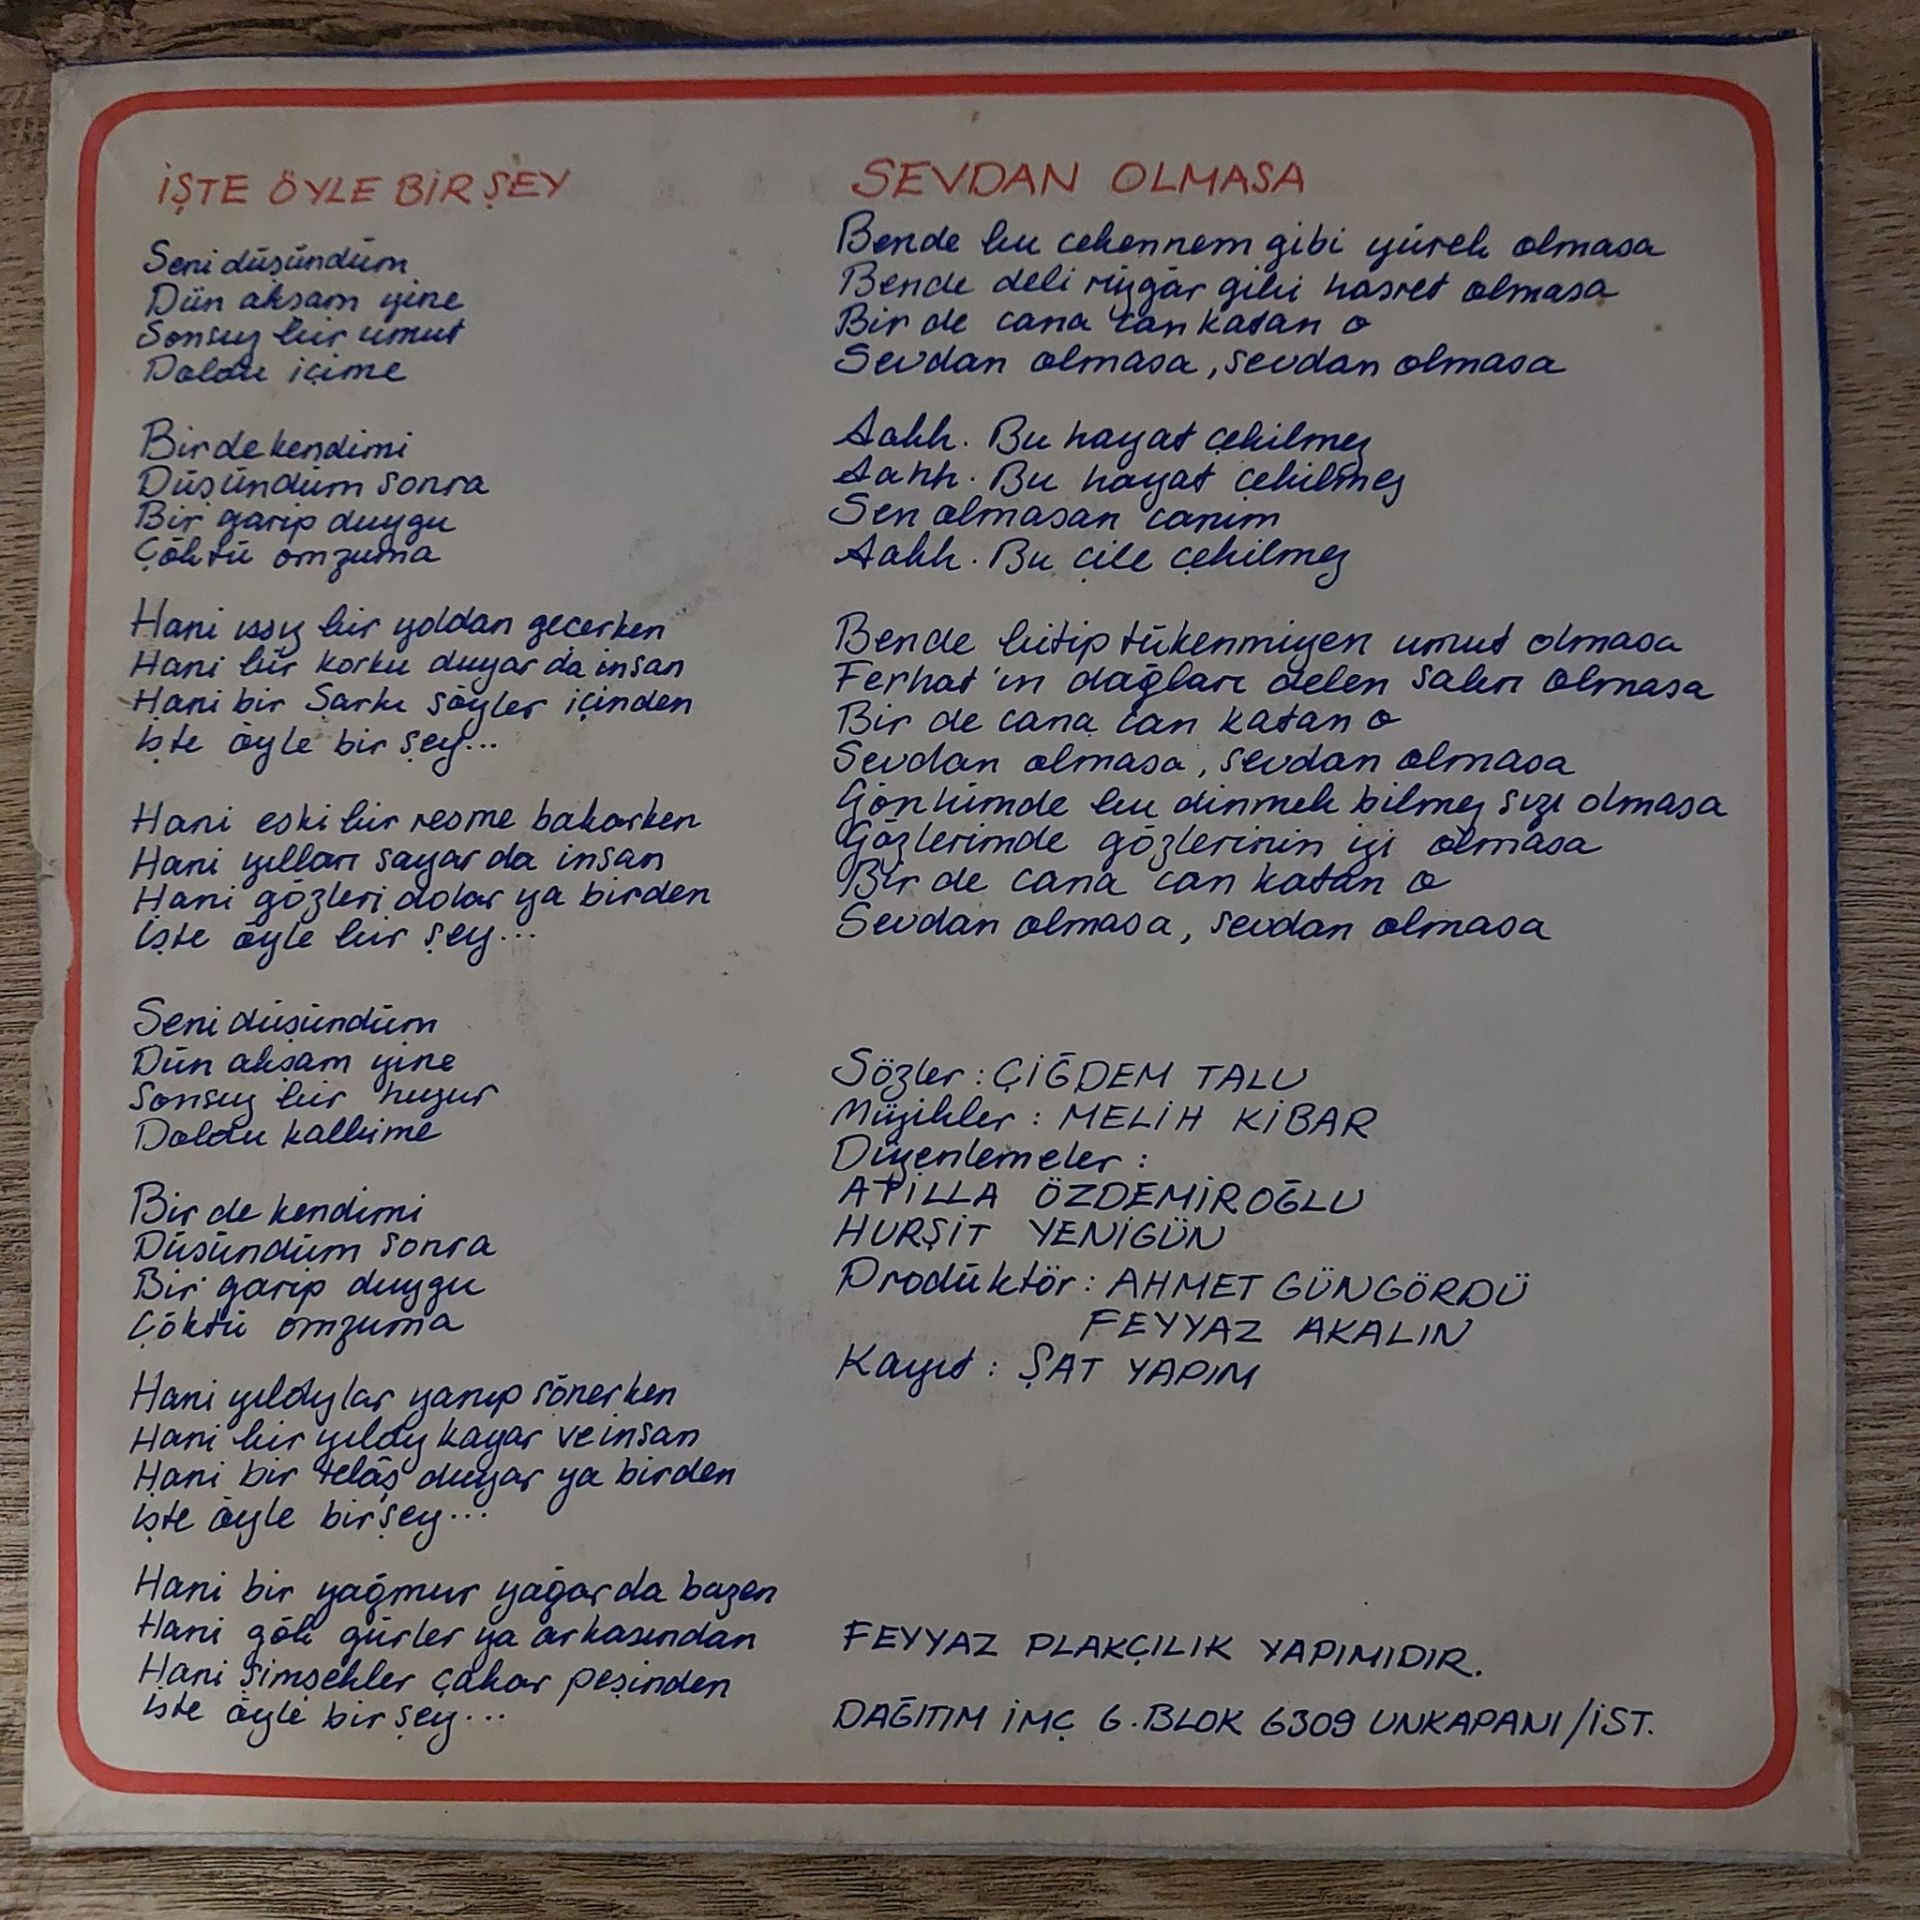 İŞTE ÖYLE BİR ŞEY
Seni düşündüm
Dün akşam yine
Sonsuz bir umut
Doldu içime
Bir de kendimi
Düşündüm sonra
Bir garip duygu
Çöktü omzuma
Hani ıssız bir yoldan geçerken
Hani bir korku duyar da insan
Hani bir Şarkı söyler içinden
İşte öyle bir şey...
Hani eski bir resme bakarken
Hani yılları sayar da insan
Hani gözleri dolar ya birden
İşte öyle bir şey...
Seni düşündüm
Dün akşam yine
Sonsuz bir huzur
Doldu kalbime
Bir de kendimi
Düşündüm sonra
Bir garip duygu
Çöktü omzuma
Hani yıldızlar yanıp sönerken
Hani bir yıldız kayar ve insan
Hani bir telâş duyar ya birden
İşte öyle bir şey...
Hani bir yağmur yağar da bazen
Hani gök gürler ya arkasından
Hani şimşekler çakar peşinden
İşte öyle bir şey...
SEVDAN OLMASA
Bende bu cehennem gibi yürek olmasa
Bende deli rüzgâr gibi hasret olmasa
Bir de cana can katan o
Sevdan olmasa, sevdan olmasa
Aahh. Bu hayat çekilmez
Aahh. Bu hayat çekilmez
Sen olmasan canım
Aahh. Bu çile çekilmez
Bende bitip tükenmiyen umut olmasa
Ferhat'ın dağları delen sabrı olmasa
Bir de cana can katan o
Sevdan olmasa, sevdan olmasa
Gönlümde bu dinmek bilmez sızı olmasa
Gözlerimde gözlerinin izi olmasa
Bir de cana can katan o
Sevdan olmasa, sevdan olmasa
Sözler : ÇİĞDEM TALU
Müzikler : MELİH KİBAR
Düzenlemeler :
ATİLLA ÖZDEMİROĞLU
HURŞİT YENİGÜN
Prodüktör : AHMET GÜNGÖRDÜ
FEYYAZ AKALIN
Kayıt : ŞAT YAPIM
FEYYAZ PLAKÇILIK YAPIMIDIR.
DAĞITIM İMÇ 6. BLOK 6309 UNKAPANI/İST.